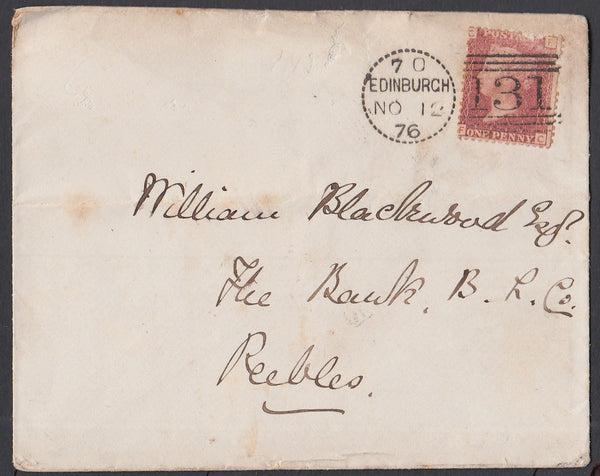 70
EDINBURGH
NO 12
76
POSTAGE
131
ONE PENNY
William Blackwood Esq.
The Bank, B. L. Co.
Peebles.